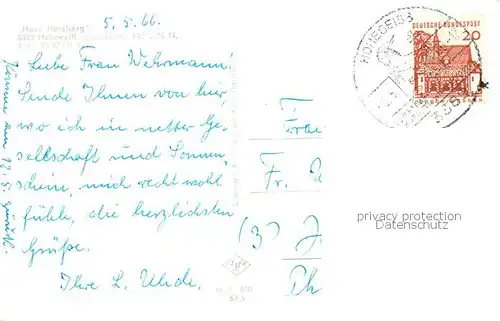 5.5.66.
"Haus Herzberg"
Liebe Frau Wehrmann!
Sende Ihnen von hier,
wo ich in netter Ge-
sellschaft und Sonnen-
schein, mich recht wohl
fühle, die herzlichsten
Grüße.
Ihre L. Uhde.
Komme am 12.5. zurück.
HOHEGEISS
DEUTSCHE BUNDESPOST
20
Frau
Fr.
(3)
Ph
privacy protection
Datenschutz